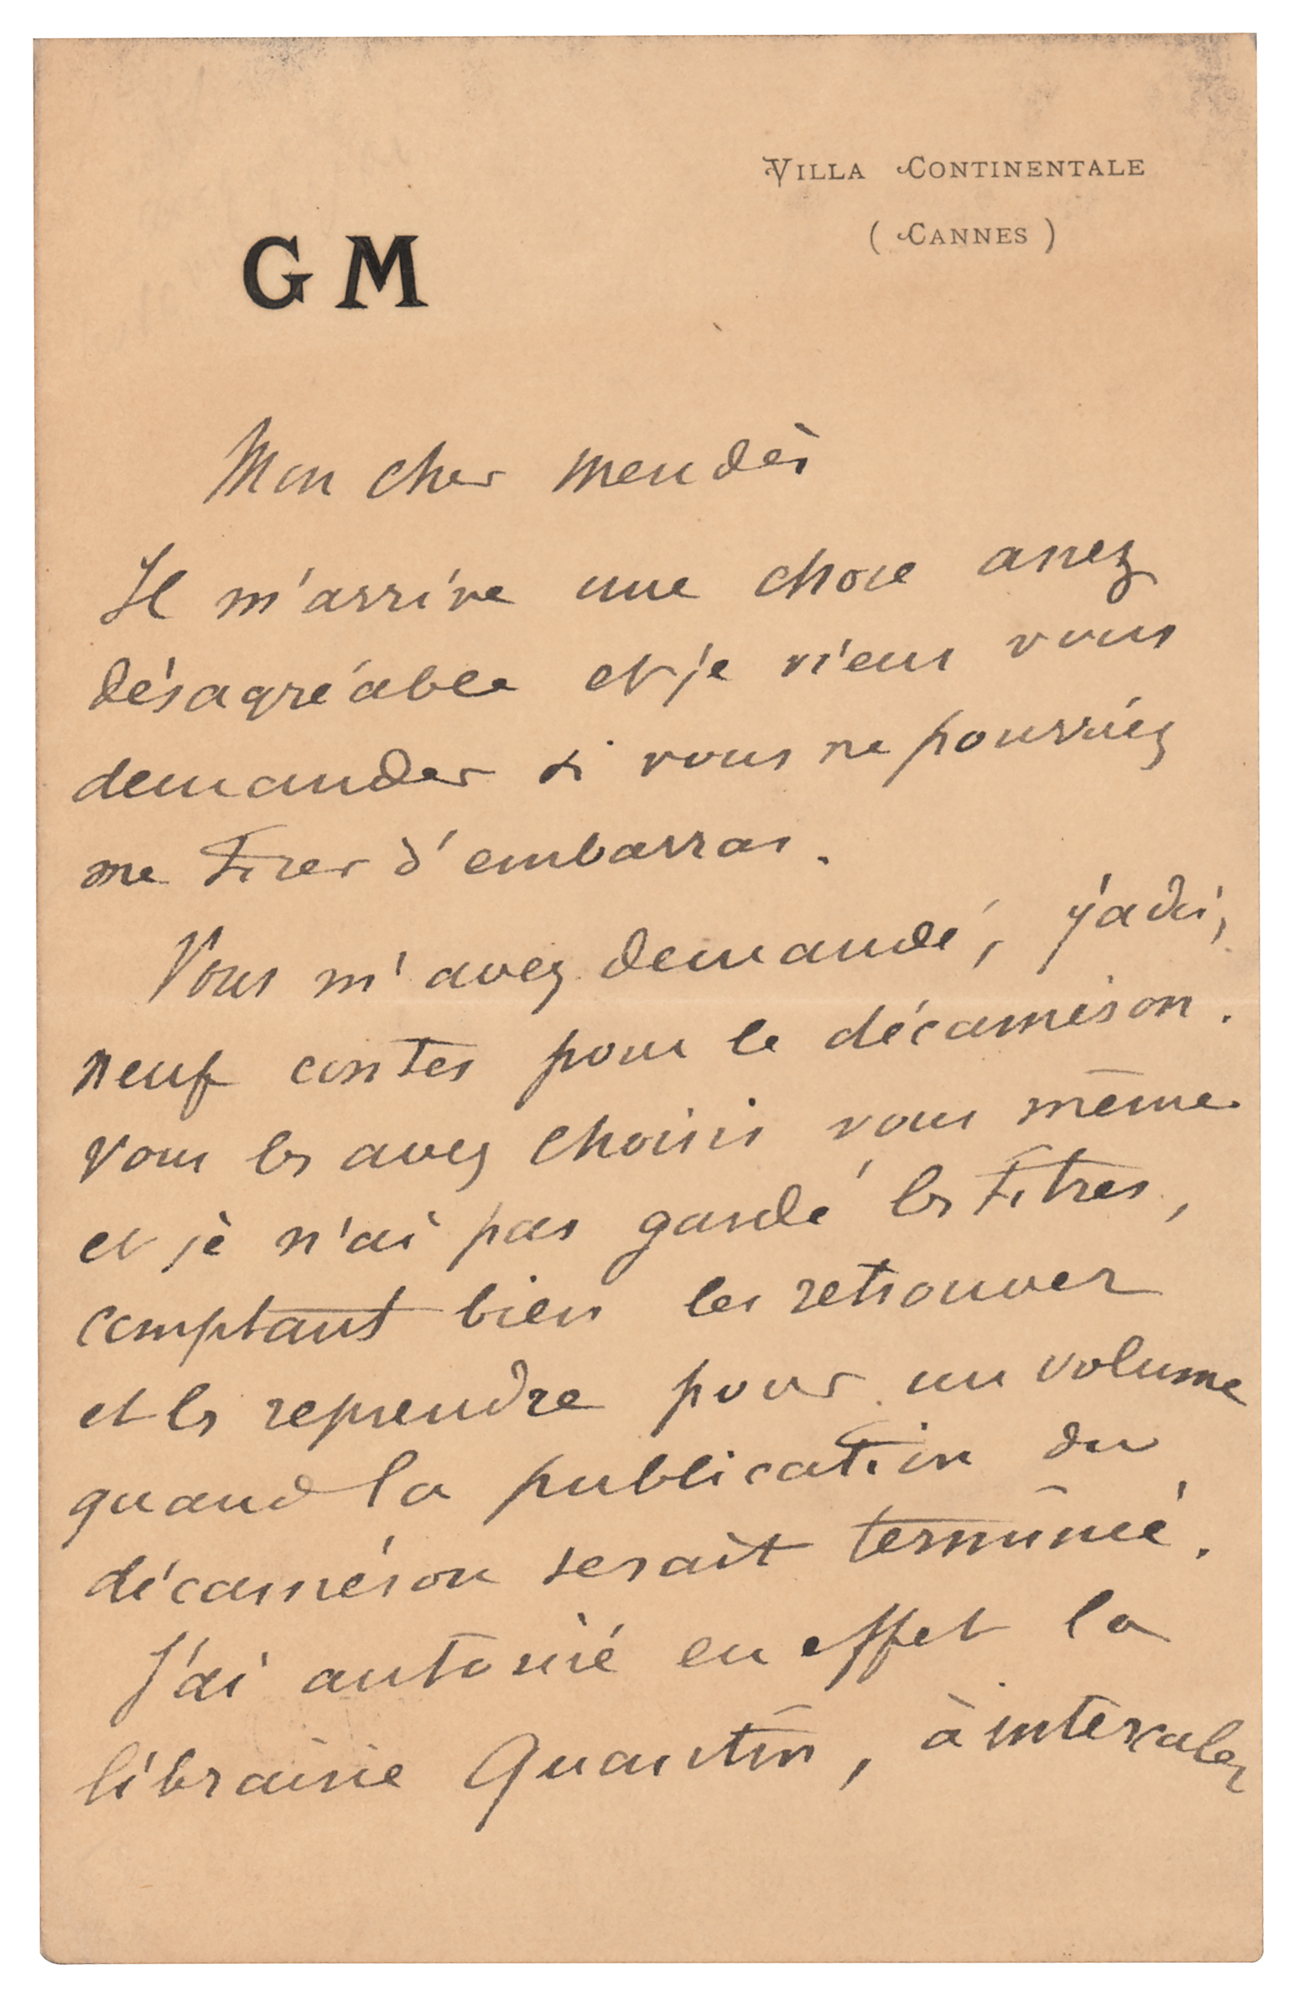 VILLA CONTINENTALE
( CANNES )
G M
Mon cher Mendès
Il m'arrive une chose assez
désagréable et je viens vous
demander si vous ne pourriez
me tirer d'embarras.
Vous m'avez demandé, jadis,
neuf contes pour le décaméron.
Vous les avez choisis vous même
et je n'ai pas gardé les titres,
comptant bien les retrouver
et les reprendre pour un volume
quand la publication du
décaméron serait terminée.
J'ai autorisé en effet la
librairie Quantin, à intervales